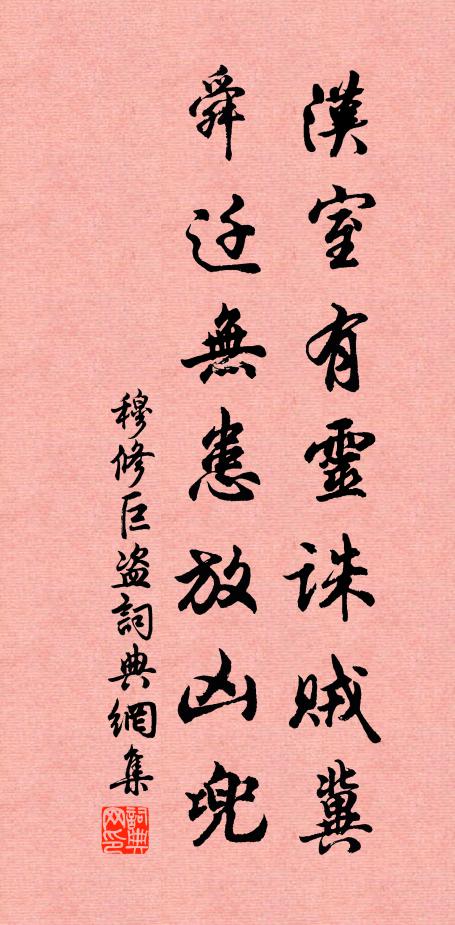 漢室有靈誅賊冀
舜廷無患放凶兜
穆修巨盗詞典網集
詞典网印